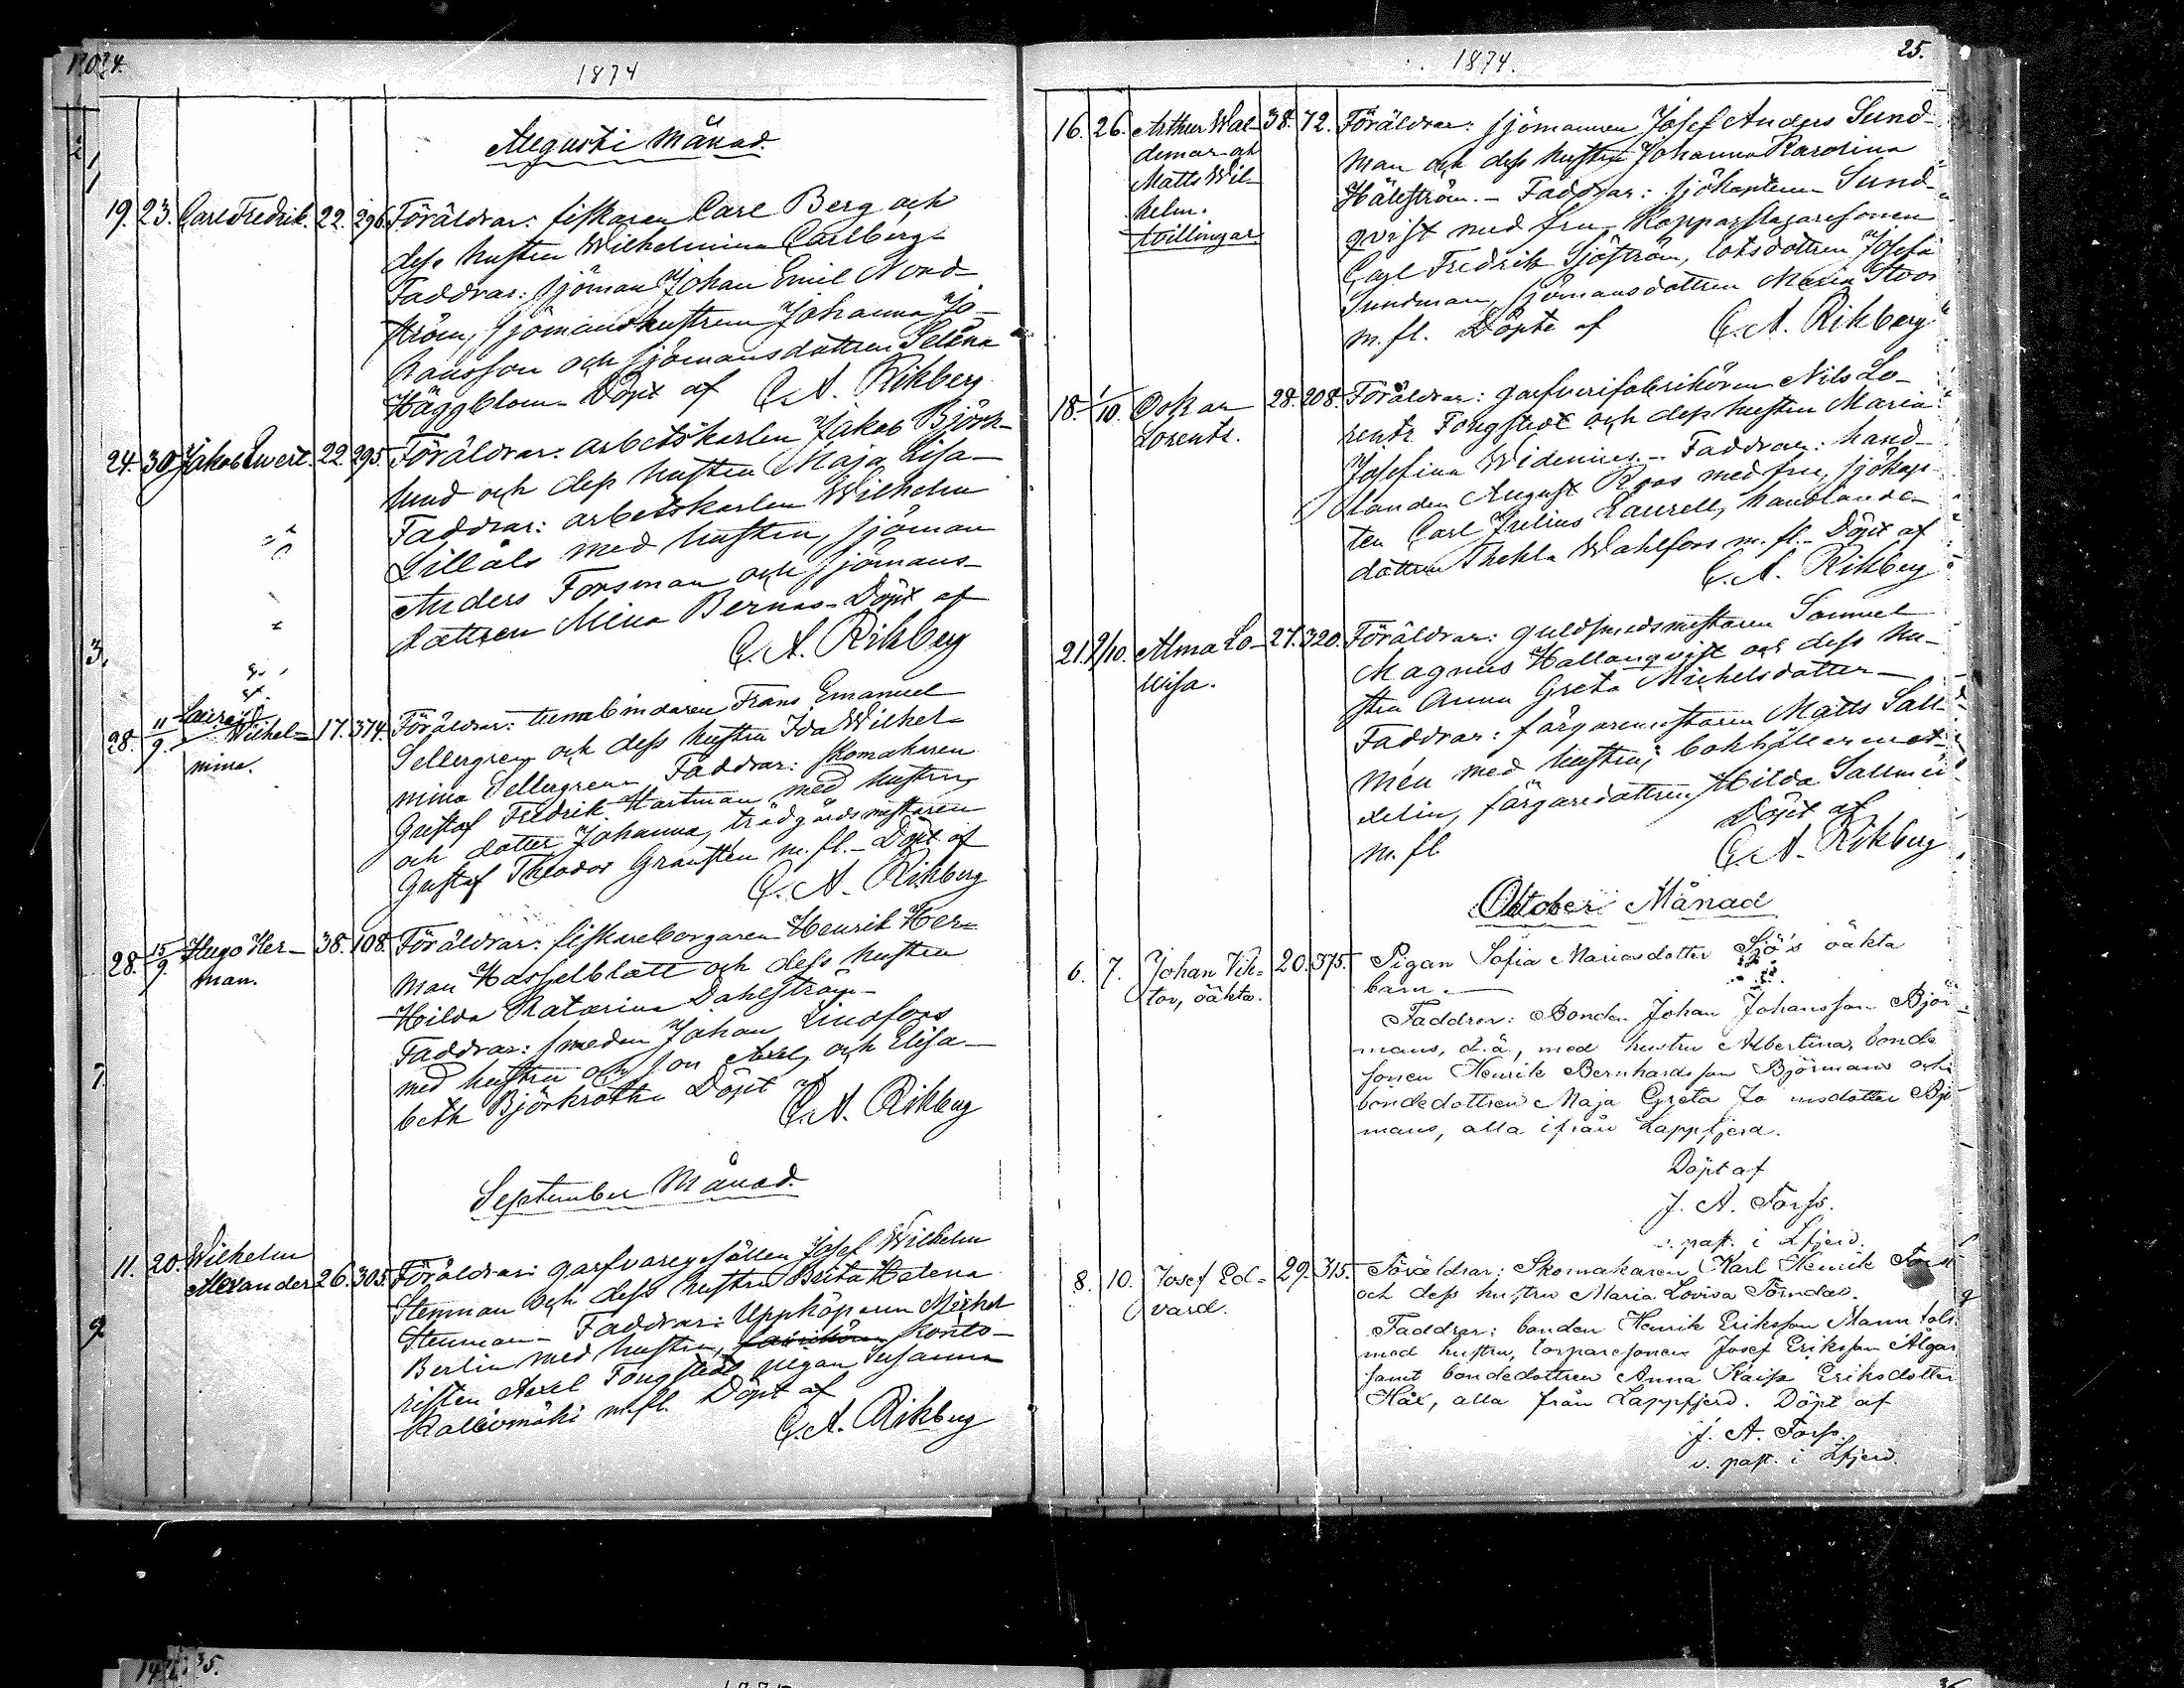 1874
Augusti Månad.
19. 23. Carl Fredrik. 22. 296. Föräldrar: fiskaren Carl Berg och
dess hustru Wilhelmina Carlberg
Faddrar: sjöman Johan Emil Nord
ström, sjömanshustrun Johanna Jo-
hansson och sjömansdottren Selena
Häggblom. Döpt af C. A. Rikberg
24. 30. Jakob Evert. 22. 295. Föräldrar: arbetskarlen Jakob Björk-
lund och dess hustru Maja Lisa
Faddrar: arbetskarlen Wilhelm
Lillåls med hustru, sjöman
Anders Forsman och sjömans-
dottren Mina Bernas. Döpt af
C. A. Rikberg
28. 11/9. Wilhel= 17. 374. Föräldrar: tunnbindaren Frans Emanuel
mina. Sellergren och dess hustru Ida Wilhel-
mina Sellergren. Faddrar: skomakaren
Gustaf Fredrik Hartman med hustru
och dotter Johanna, trädgårdsmästaren
Gustaf Theodor Gransten m. fl. Döpt af
C. A. Rikberg
28. 15/9. Hugo Her- 38. 108. Föräldrar: fiskareborgaren Henrik Her-
man. man Hasselblatt och dess hustru
Hilda Katarina Dahlström
Faddrar: smeden Johan Lindfors
med hustru och son Axel, och Elisa-
beth Björkroth. Döpt af
C. A. Rikberg
September Månad.
11. 20. Wilhelm
Alexander 26. 305. Föräldrar: garfvaregesällen Josef Wilhelm
Stenman och dess hustru Brita Helena
Stenman. Faddrar: Uppköparen Michel
Berlin med hustru, konto-
risten Axel Tongstedt pigan Susanna
Kalliomäki m. fl. Döpt af
C. A. Rikberg
1874. 25.
16. 26. Arthur Wal- 38. 72. Föräldrar: sjömannen Josef Anders Sund-
demar och man och dess hustru Johanna Karolina
Matts Wil- Hälsström. Faddrar: sjökapten Sund-
helm. qvist med fru. Kopparslagaresonen
tvillingar. Carl Fredrik Sjöström, lotsdottren Josefa
Sundman, sjömansdottren Maria Stoor
m. fl. Döpte af C. A. Rikberg
18. 1/10. Oskar 28. 208. Föräldrar: garfverifabrikören Nils Lo-
Lorentz. rentz Tongstedt och dess hustru Maria
Josefina Widenius. Faddrar: hand-
landen August Roos med fru, sjökap-
ten Carl Julius Laurell, handlande-
dottren Thekla Wahlfors m. fl. Döpt af
C. A. Rikberg
21. 2/10. Alma Lo- 27. 320. Föräldrar: guldsmedsmästaren Samuel
wisa. Magnus Hallonqvist och dess hu-
stru Anna Greta Michelsdotter
Faddrar: färgaremästaren Matts Sall
mén med hustru,
färgaredottren Hilda Sallmén
m. fl. Döpt af
C. A. Rikberg
Oktober Månad
6. 7. Johan Vik= 20. 375. Pigan Sofia Mariasdotter Sjö's oäkta
tor, oäkta. barn.
Faddrar: Bonden Johan Johansson Björ
mans, d. ä., med hustru Albertina, bonde
sonen Henrik Bernhardsson Björmans och
bondedottren Maja Greta
mans, alla ifrån Lappfjerd.
Döpt af
J. A. Forss.
v. past. i Lfjerd.
8. 10. Josef Ed= 29. 315. Föräldrar: Skomakaren Karl Henrik
vard. och dess hustru Maria Lovisa Törndal.
Faddrar: bonden Henrik Eriksson
med hustru, torparesonen Josef Eriksson Ålgars
samt bondedottren Anna Kaisa Eriksdotter
Håx, alla från Lappfjerd. Döpt af
J. A. Forss.
v. past. i Lfjerd.